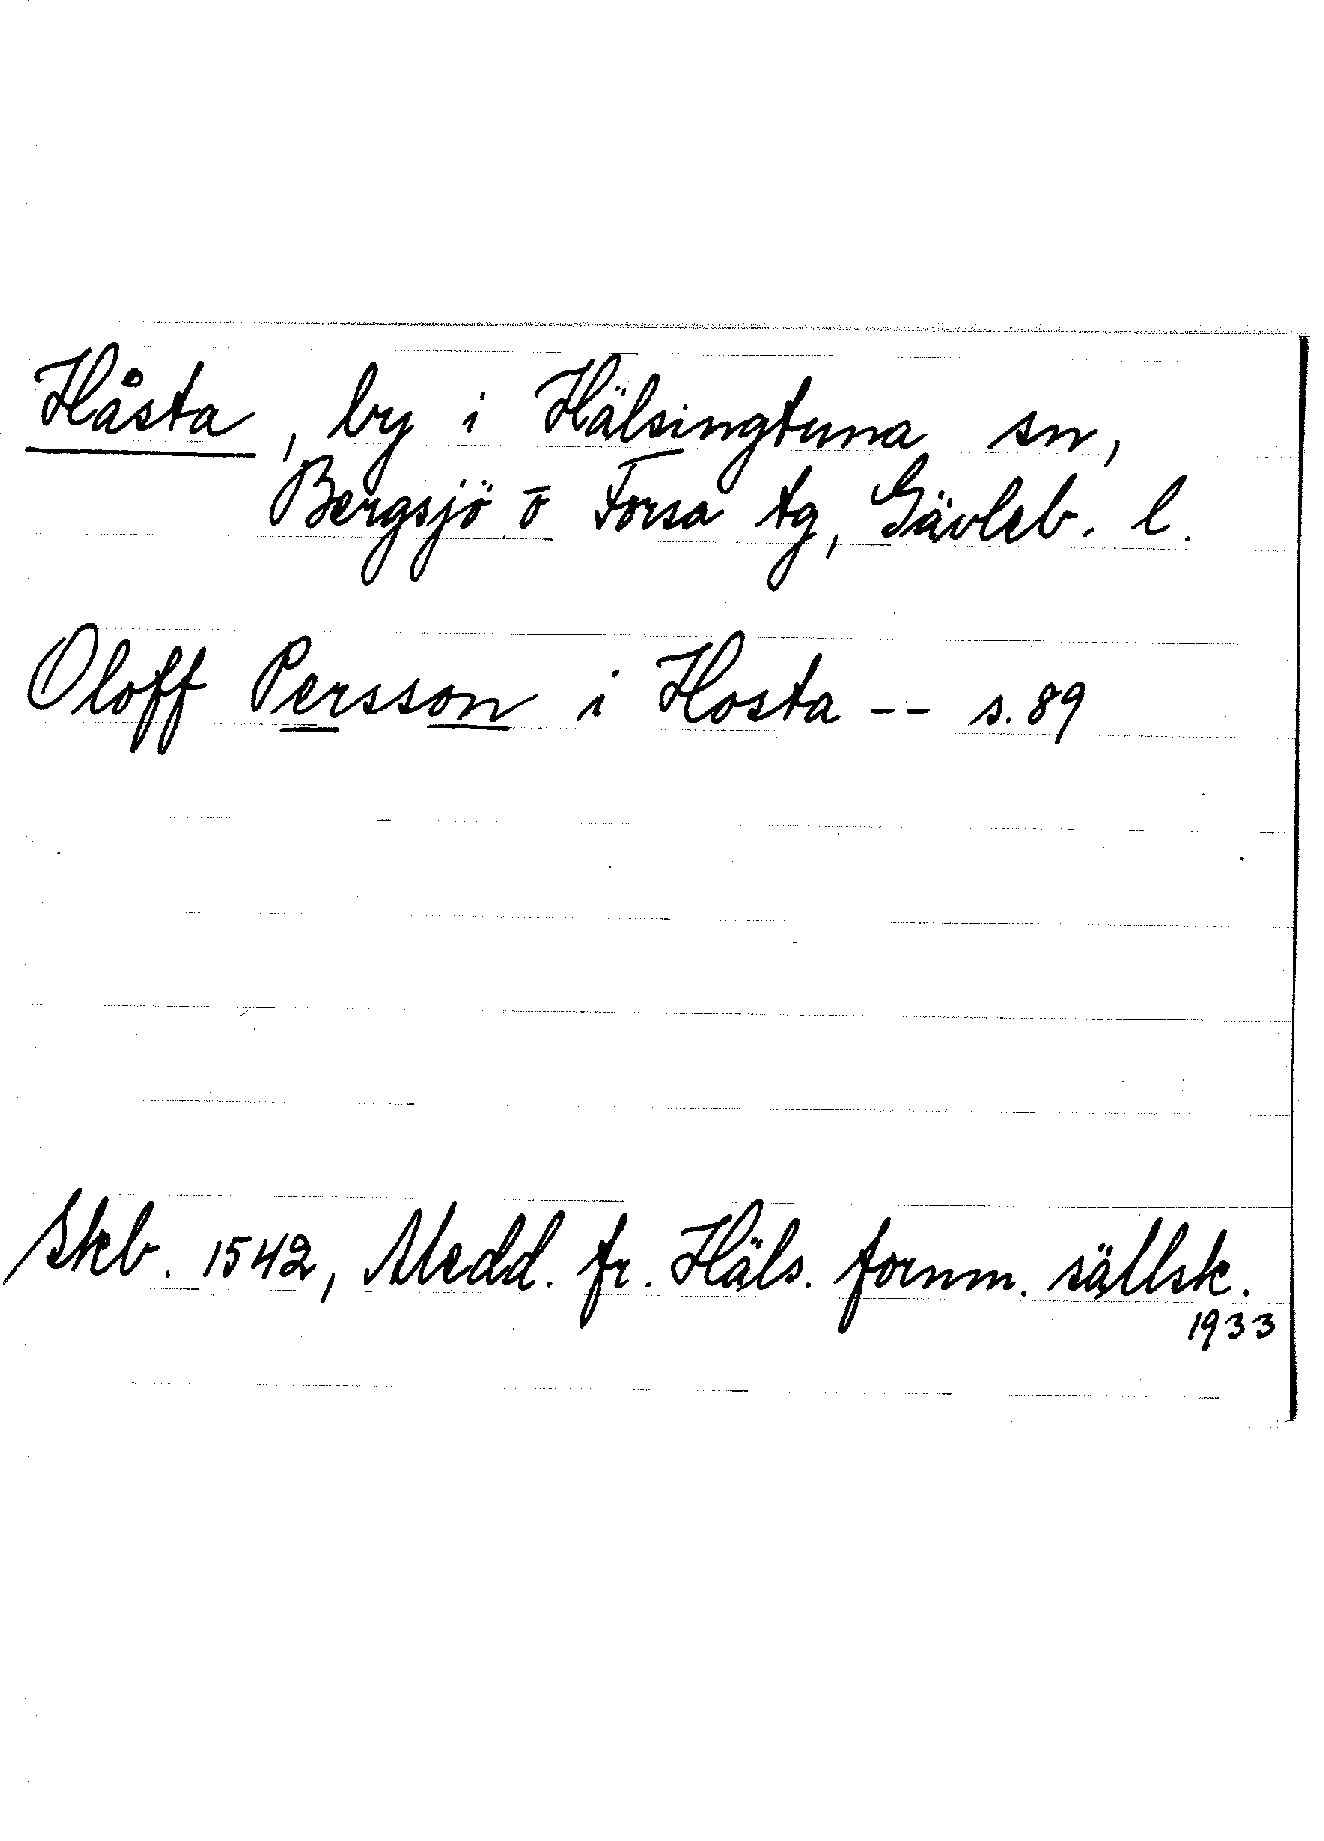 Håsta, by i Hälsingtuna sn,
Bergsjö o Forsa tg, Gävleb. l.
Oloff Persson i Hosta -- s. 89
Skb. 1542, Medd. fr. Häls. fornm. sällsk.
1933